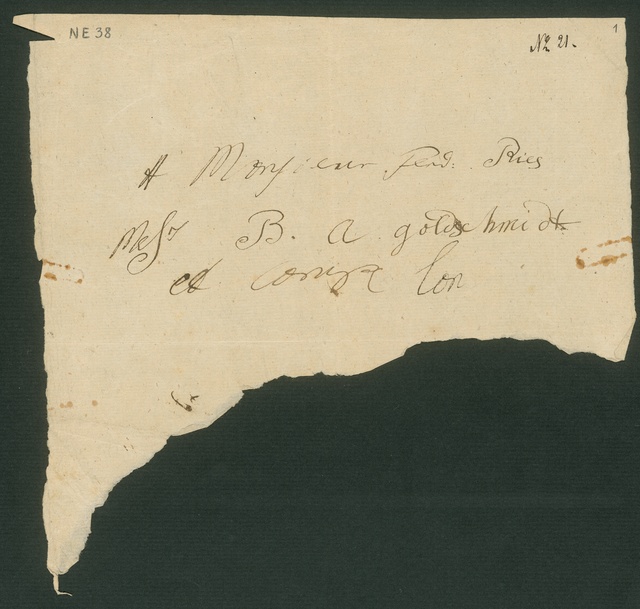 NE 38
No 21.
1
A Monsieur ferd: Ries
Messrs B. A. goldschmidt
et compe lon